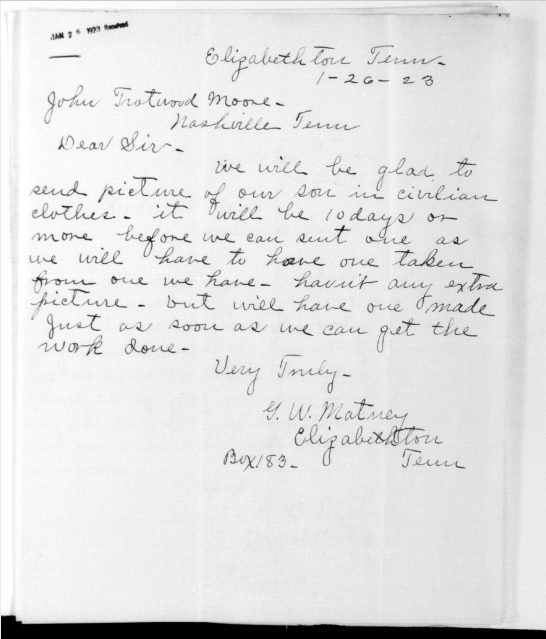 JAN 26 1923 Received
Elizabethton Tenn-
1-26-23
John Trotwood Moore-
Nashville Tenn
Dear Sir-
We will be glad to
send picture of our son in civilian
clothes- it will be 10 days or
more before we can sent one as
we will have to have one taken
from one we have- havn't any extra
picture- but will have one made
Just as soon as we can get the
work done-
Very Truly-
G. W. Matney
Elizabethton
Box 183- Tenn